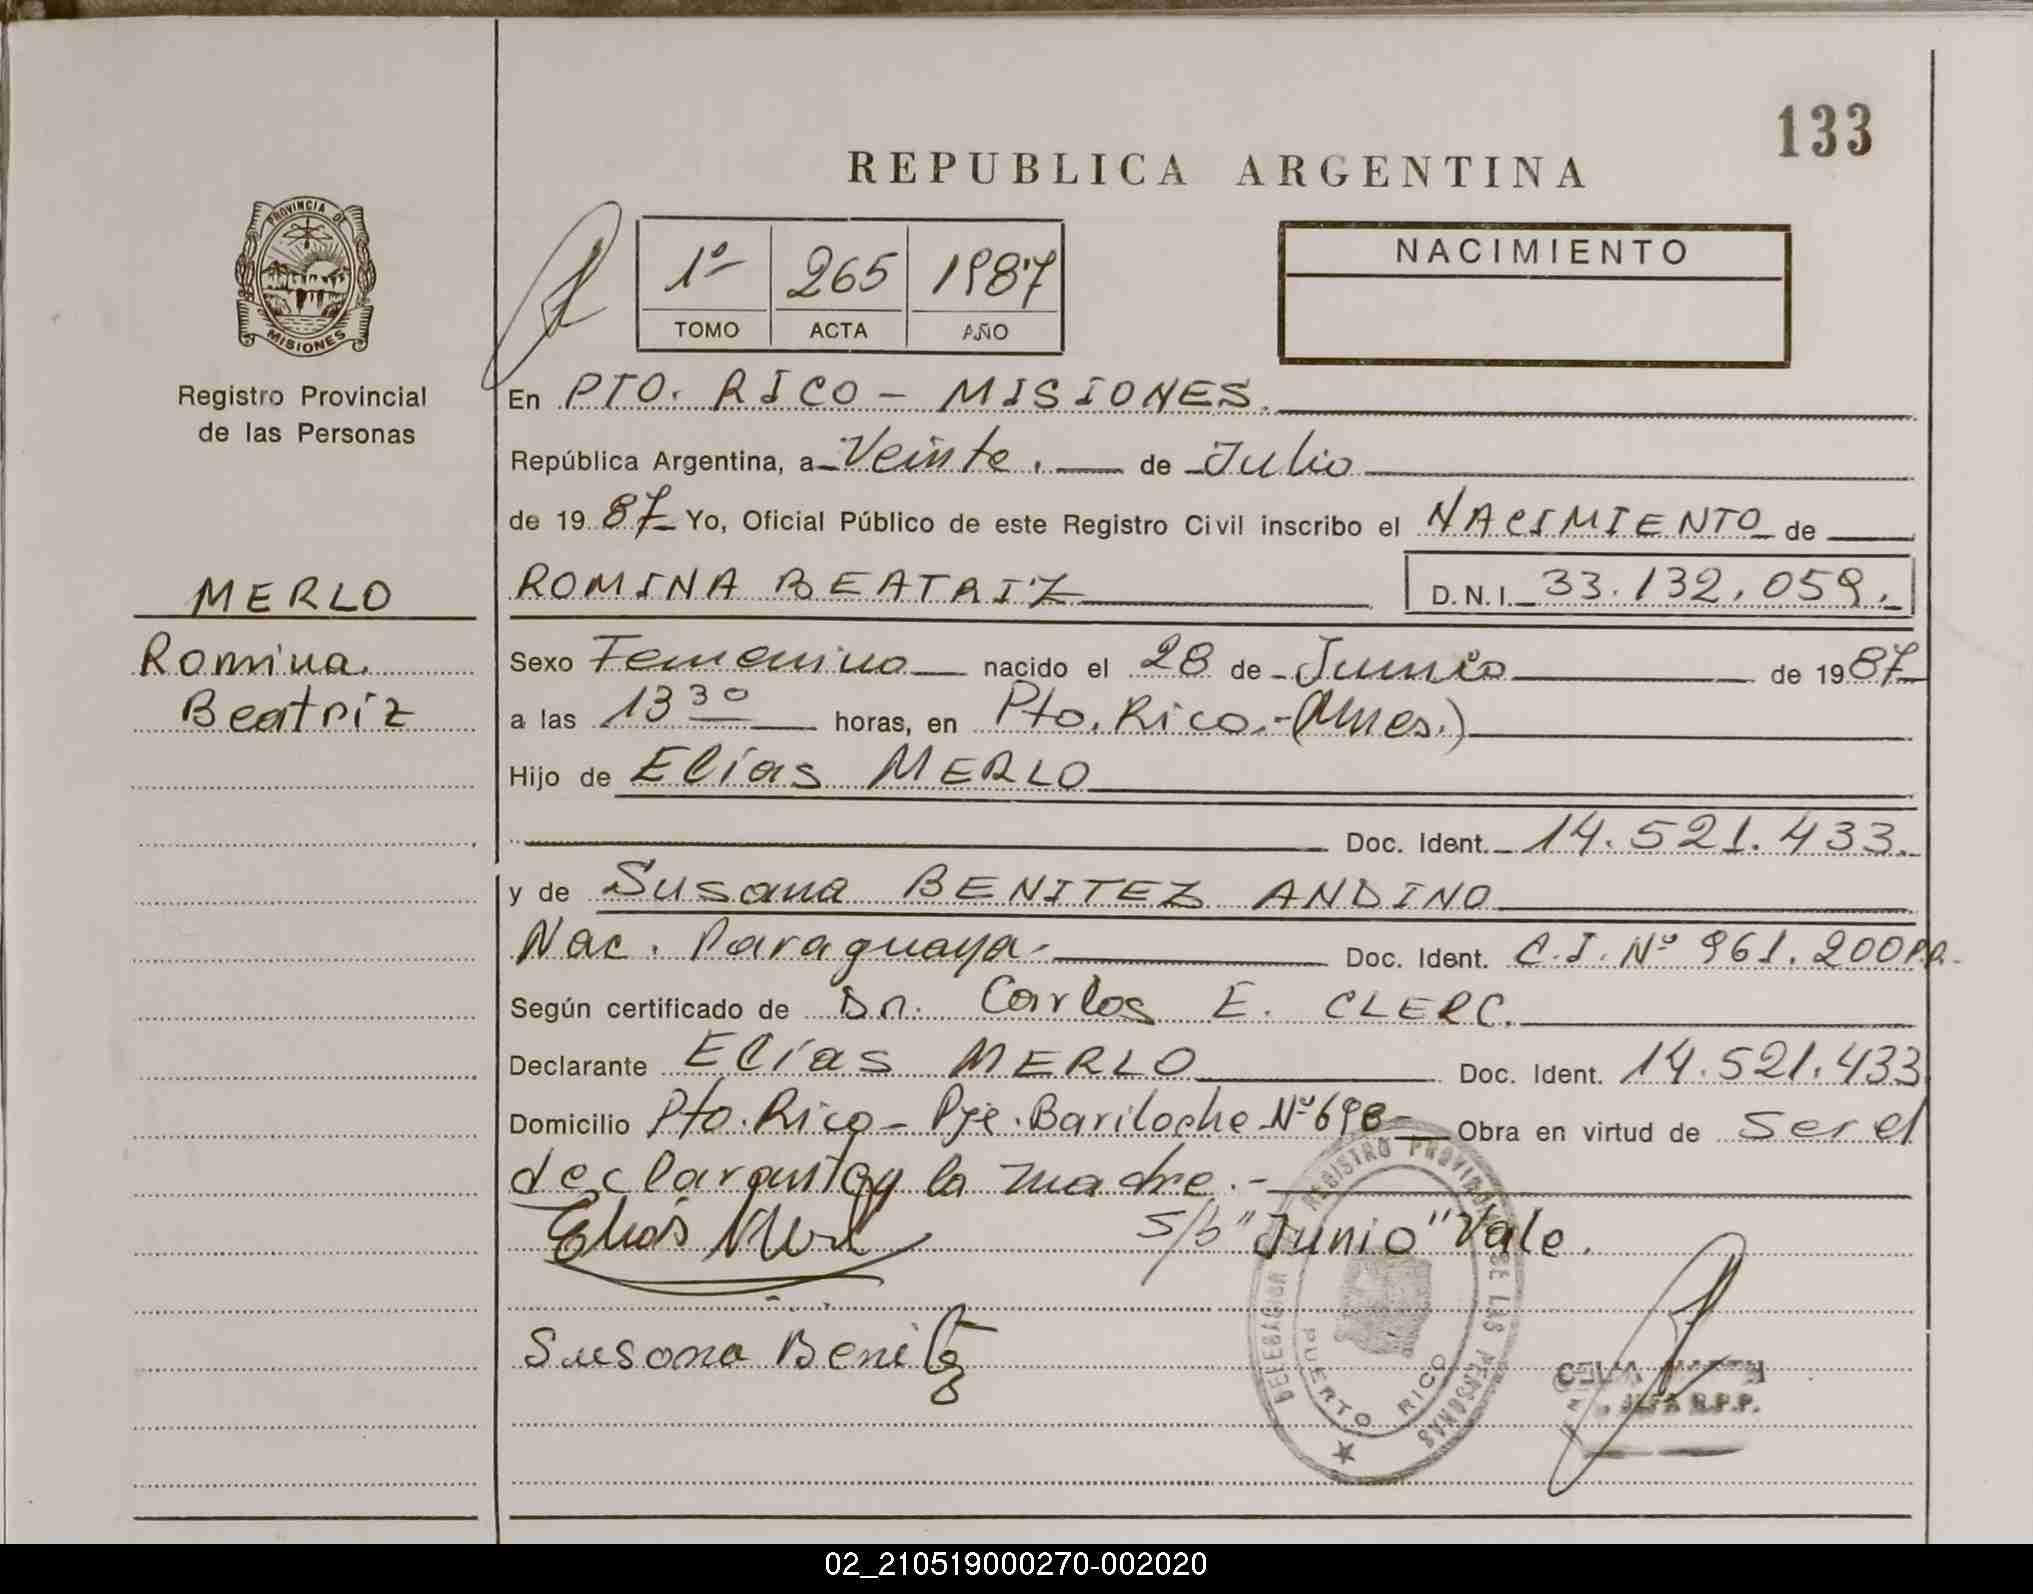 133
REPUBLICA ARGENTINA
PROVINCIA DE
MISIONES
Registro Provincial
de las Personas
1º 265 1987
TOMO ACTA AÑO
NACIMIENTO
En PTO. RICO - MISIONES.
República Argentina, a Veinte. de Julio
de 1987 Yo, Oficial Público de este Registro Civil inscribo el NACIMIENTO de
MERLO
Romina
Beatriz
ROMINA BEATRIZ D.N.I. 33.132.059.
Sexo Femenino nacido el 28 de Junio de 1987
a las 13 30 horas, en Pto. Rico.-(Mnes.)
Hijo de Elías MERLO
Doc. Ident. 14.521.433.
y de Susana BENITEZ ANDINO
Nac. Paraguaya.- Doc. Ident. C.I. Nº 961.200 P.A.
Según certificado de Dr. Carlos E. CLERC.
Declarante Elías MERLO Doc. Ident. 14.521.433
Domicilio Pto. Rico - Pje. Bariloche Nº 698 Obra en virtud de ser el
declarante y la madre.-
Elias Merlo S/b "Junio" Vale.
Susana Benitez
DELEGACION REGISTRO PROVINCIAL DE LAS PERSONAS
PUERTO RICO
CELIA
R.P.P.
02_210519000270-002020